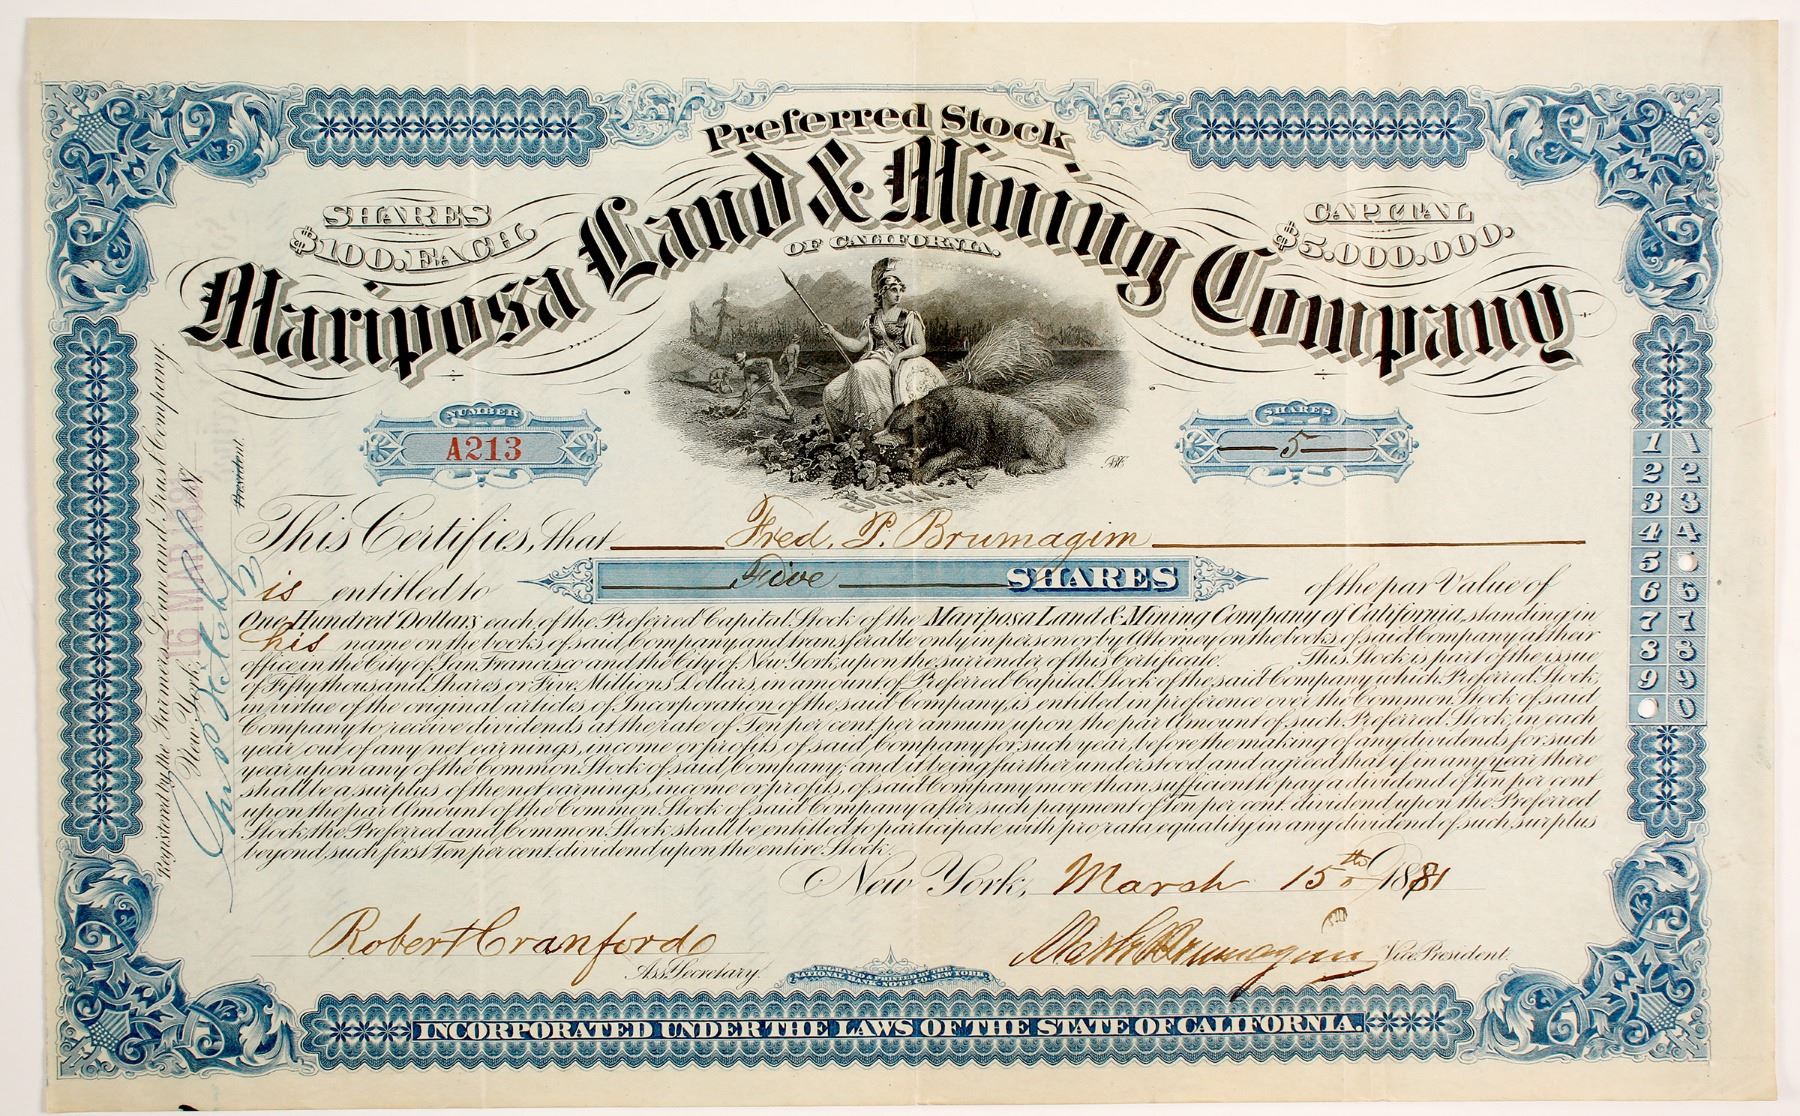 Preferred Stock
SHARES
$100. EACH.
CAPITAL
$5.000.000.
Mariposa Land & Mining Company
OF CALIFORNIA.
NUMBER
A213
SHARES
5
EUREKA
This Certifies, that Fred. P. Brumagim
is entitled to Five SHARES of the par Value of
One Hundred Dollars each, of the Preferred Capital Stock of the Mariposa Land & Mining Company of California, standing in
his name on the books of said Company and transferable only in person or by Attorney on the books of said Company at their
office in the City of San Francisco and the City of New York, upon the surrender of this Certificate. This Stock is part of the issue
of Fifty thousand Shares or Five Millions Dollars, in amount of Preferred Capital Stock of the said Company which Preferred Stock,
in virtue of the original articles of Incorporation of the said Company, is entitled in preference over the Common Stock of said
Company to receive dividends at the rate of Ten per cent per annum upon the par Amount of such Preferred Stock, in each
year out of any net earnings, income or profits of said Company for such year, before the making of any dividends for such
year upon any of the Common Stock of said Company; and it being further understood and agreed that if in any year there
shall be a surplus of the net earnings, income or profits, of said Company more than sufficient to pay a dividend of Ten per cent
upon the par Amount of the Common Stock of said Company after such payment of ten per cent. dividend upon the Preferred
Stock, the Preferred and Common Stock shall be entitled to participate with pro rata equality in any dividend of such surplus
beyond such first Ten per cent. dividend upon the entire Stock.
New York, March 15th 1881
Robert Cranford
Ass. Secretary.
Vice President.
ENGRAVED & PRINTED BY THE
NATIONAL BANK-NOTE CO. NEW YORK.
INCORPORATED UNDER THE LAWS OF THE STATE OF CALIFORNIA.
Registered by the Farmers Loan and Trust Company.
New York, 16 MAR 18
President.
1 1
2 2
3 3
4 4
5
6 6
7 7
8 8
9 9
0